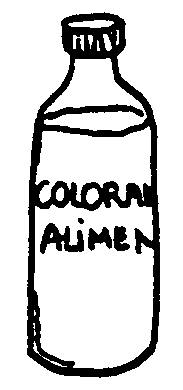 COLORAN
ALiMEN